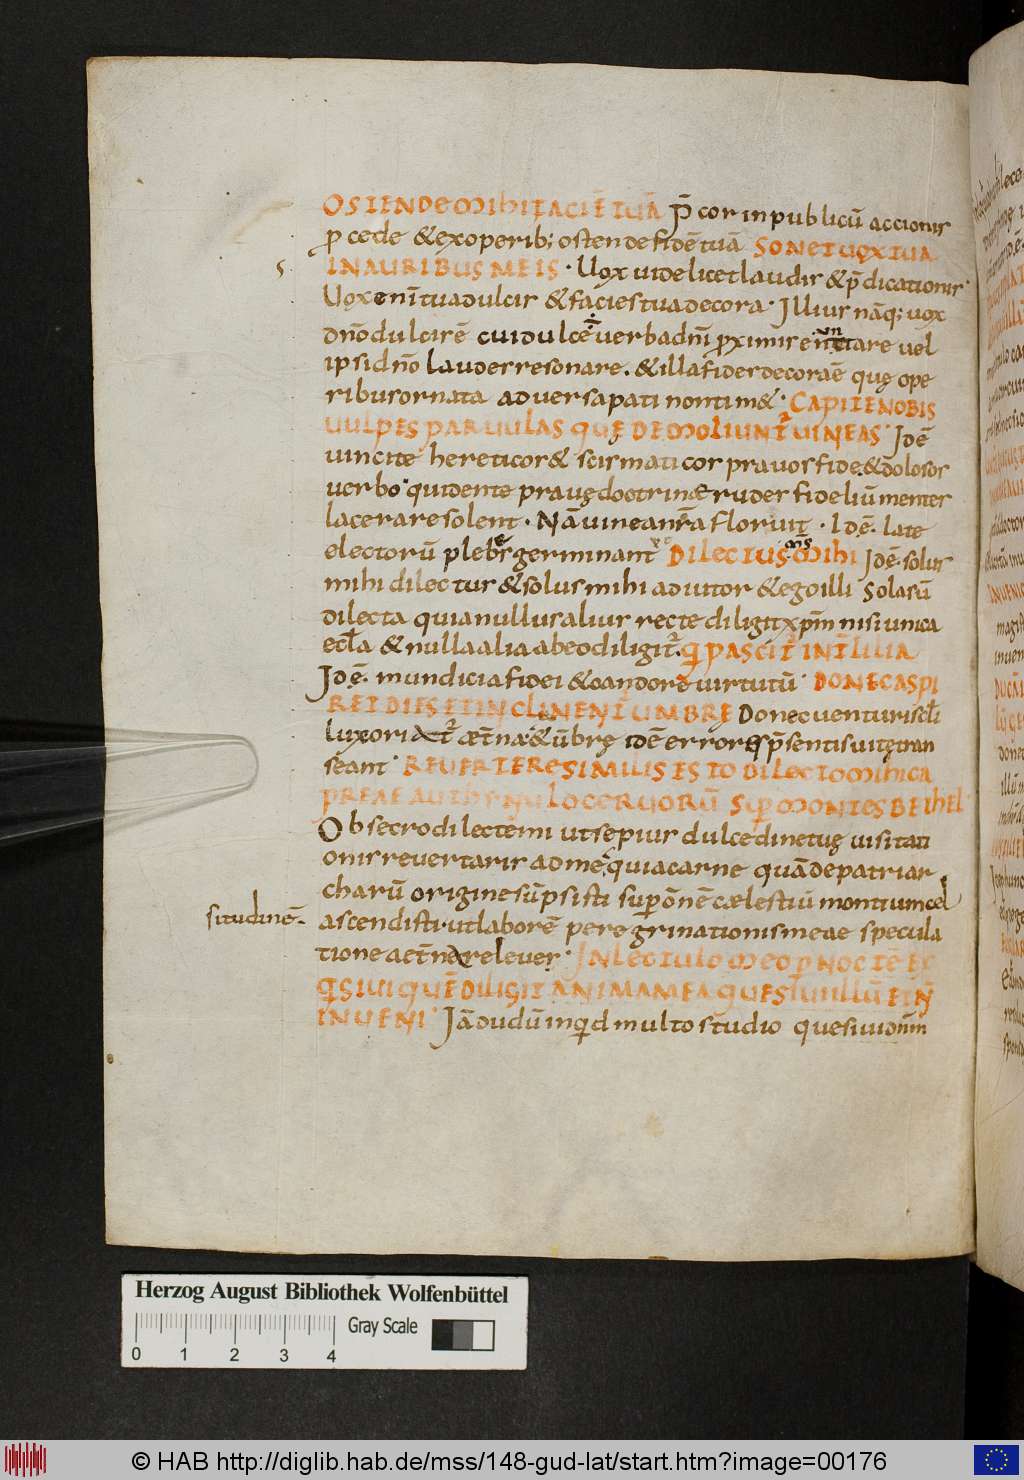 OSTENDE MIHI FACIĒ TUĀ P̄cor in publicū accionis
ꝓcede & ex operib; ostende fidē tuā SONET UOX TUA
IN AURIBUS MEIS · Uox uidelicet laudis & p̄dicationis
Uox eni tua dulcis & facies tua decora · Illius nāq; uox
dn̄o dulcis ē cui dulce ÷ uerba dn̄i ꝓximis e uel
ipsi dn̄o laudes resonare . & illa fides decora ē quę ope
ribus ornata aduersa pati non tim& · CAPITE NOBIS
UULPES PARUULAS QUE DEMOLIUNT̄ UINEAS · Id ē
uincite hereticor & scismaticor prauos fide & dolosos
uerbo qui dente prauę doctrinae rudes fideliū mentes
lacerare solent · Nā uinea nr̄a floruit · Id ē . late
electorū plebes germinant DILECTUS MS MIHI Id ē . solus
mihi dilectus & solus mihi adiutor & ego illi sola sū
dilecta quia nullus alius recte diligit xp̄m nisi unica
eccla & nulla alia ab eo diligit̄ . Q PASCIT̄ INT̄ LILIA
Id ē . mundicia fidei & candore uirtutū · DONEC ASPI
RET DIES ET INCLINENT̄ UMBRE Donec uenturi scl̄i
lux oriat̄ æt̄na · & ūbrę idē errores p̄sentis uitę tran
seant · REUERTERE SIMILIS ESTO DILECTO MI CA
PREAE AUT HYNULO CERUORŪ SUP MONTES BETHEL
Obsecro dilecte mi ut sepius dulcedine tuę uisitati
onis reuertaris ad me quia carne quā de patriar
charū origine sūpsisti sup ōnē cælestiū montium cel
situdinē –
ascendisti ut laborē peregrinationis meae specula
tione aet̄ne releues · IN LECTULO MEO P NOCTE
QSIUI QUĒ DILIGIT ANIMA MEA QUESIUI ILLŪ ET N̄
INUENI · Iā dudū inq̄d multo studio quesiui dn̄m
Herzog August Bibliothek Wolfenbüttel
Gray Scale
0 1 2 3 4
© HAB http://diglib.hab.de/mss/148-gud-lat/start.htm?image=00176